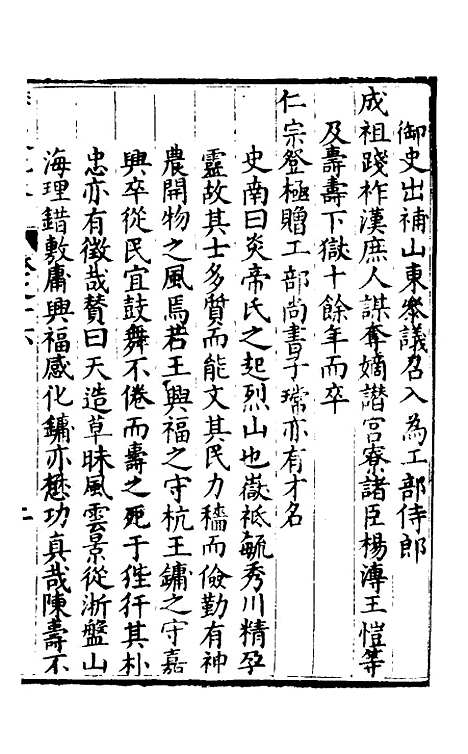 御史出補山東叅議召入為工部侍郎
成祖踐祚漢庶人謀奪嫡譖宫寮諸臣楊溥王愷等
及壽壽下獄十餘年而卒
仁宗登極贈工部尚書子瑺亦有才名
史南曰炎帝氏之起烈山也嶽祇毓秀川精孕
靈故其士多質而能文其民力穡而儉勤有神
農開物之風焉若王興福之守杭王鏞之守嘉
興卒從民宜鼓舞不倦而壽之死于狴犴其朴
忠亦有徵哉賛曰天造草昧風雲景從浙盤山
海理錯敷庸興福感化鏞亦懋功真哉陳壽不